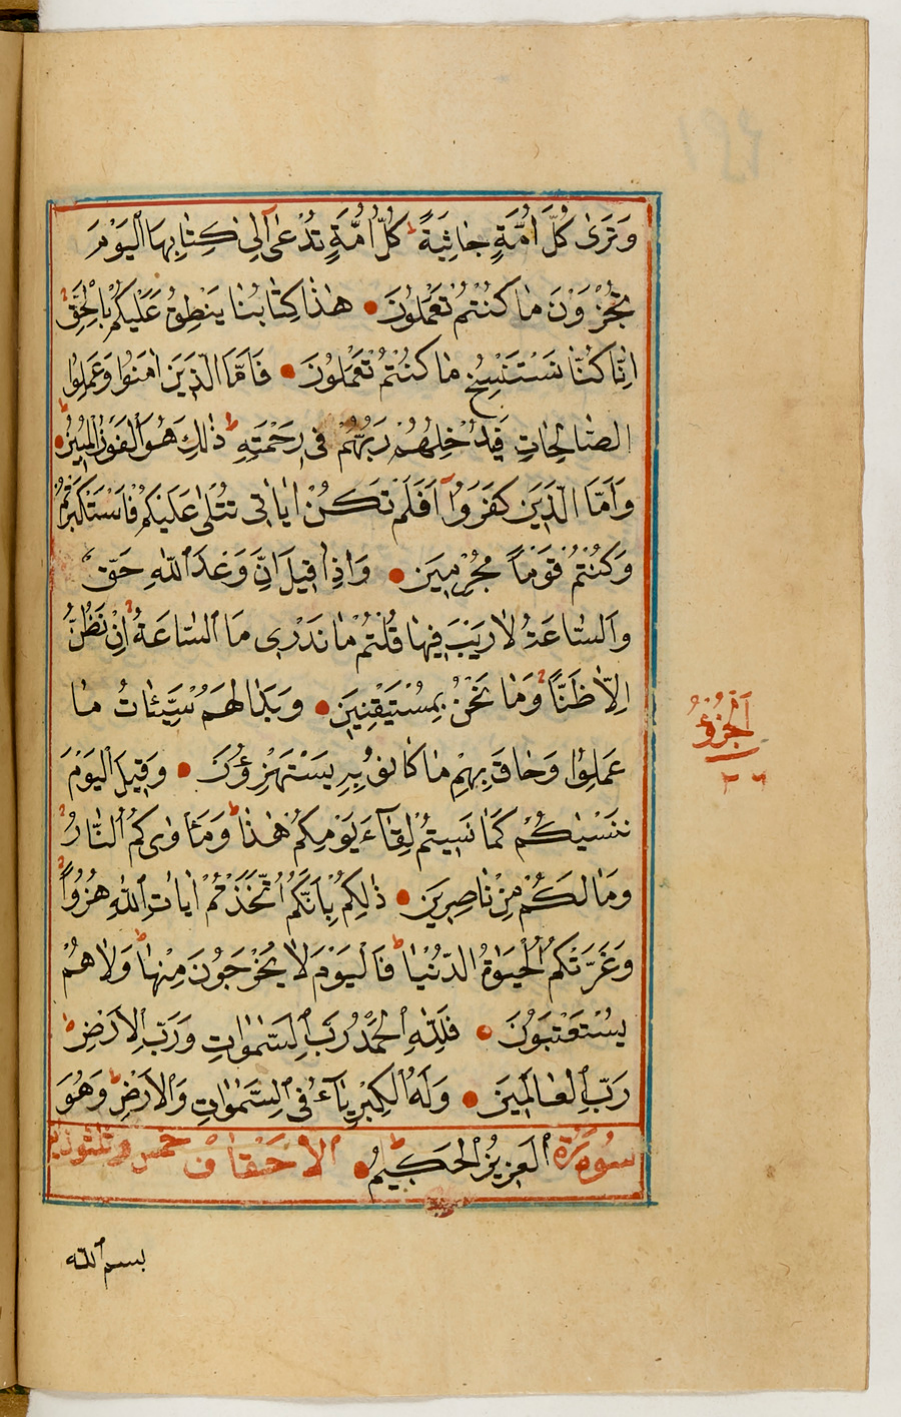 وَتَرٰى كُلَّ اُمَّةٍ جٰاثِيَةً كُلُّ اُمَّةٍ تُدْعٰٓى اِلٰى كِتٰابِهَا اَلْيَوْمَ
تُجْزَوْنَ مٰا كُنْتُمْ تَعْمَلُونَ هٰذٰا كِتٰابُنٰا يَنْطِقُ عَلَيْكُمْ بِالْحَقِّ
اِنّٰا كُنّٰا نَسْتَنْسِخُ مٰا كُنْتُمْ تَعْمَلُونَ فَاَمَّا الَّذِينَ اٰمَنُوا وَعَمِلُوا
الصّٰالِحٰاتِ فَيُدْخِلُهُمْ رَبُّهُمْ فِى رَحْمَتِهِ ذٰلِكَ هُوَ الْفَوْزُ الْمُبِينُ
وَاَمَّا الَّذِينَ كَفَرُوا اَفَلَمْ تَكُنْ اٰيٰاتِى تُتْلٰى عَلَيْكُمْ فَاسْتَكْبَرْتُمْ
وَكُنْتُمْ قَوْمًا مُجْرِمِينَ وَاِذٰا قِيلَ اِنَّ وَعْدَ اللّٰهِ حَقٌّ
وَالسّٰاعَةُ لٰا رَيْبَ فِيهٰا قُلْتُمْ مٰا نَدْرِى مَا السّٰاعَةُ اِنْ نَظُنُّ
اِلّٰا ظَنًّا وَمٰا نَحْنُ بِمُسْتَيْقِنِينَ وَبَدٰا لَهُمْ سَيِّئٰاتُ مٰا
عَمِلُوا وَحٰاقَ بِهِمْ مٰا كٰانُوا بِهِ يَسْتَهْزِؤُنَ وَقِيلَ الْيَوْمَ
نَنْسٰيكُمْ كَمٰا نَسِيتُمْ لِقٰٓاءَ يَوْمِكُمْ هٰذٰا وَمَأْوٰيكُمُ النّٰارُ
وَمٰا لَكُمْ مِنْ نٰاصِرِينَ ذٰلِكُمْ بِاَنَّكُمُ اتَّخَذْتُمْ اٰيٰاتِ اللّٰهِ هُزُوًا
وَغَرَّتْكُمُ الْحَيٰوةُ الدُّنْيٰا فَالْيَوْمَ لٰا يُخْرَجُونَ مِنْهٰا وَلٰا هُمْ
يُسْتَعْتَبُونَ فَلِلّٰهِ الْحَمْدُ رَبِّ السَّمٰوٰاتِ وَرَبِّ الْاَرْضِ
رَبِّ الْعٰالَمِينَ وَلَهُ الْكِبْرِيٰٓاءُ فِى السَّمٰوٰاتِ وَالْاَرْضِ وَهُوَ
سُورَة الْعَزِيزُ الْحَكِيمُ الْاَحْقٰاف خمس وثلثون
اَلْجُزْؤُ
٢٦
بسم الله